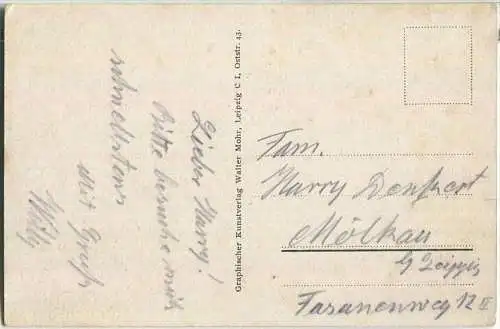 Lieber Harry!
Bitte besuche mich
schnellstens
Mit Gruß
Willy
Graphischer Kunstverlag Walter Mohr, Leipzig C 1, Oststr. 43.
Fam.
Harry Denkert
Mölkau
b/ Leipzig
Fasanenweg 12 II